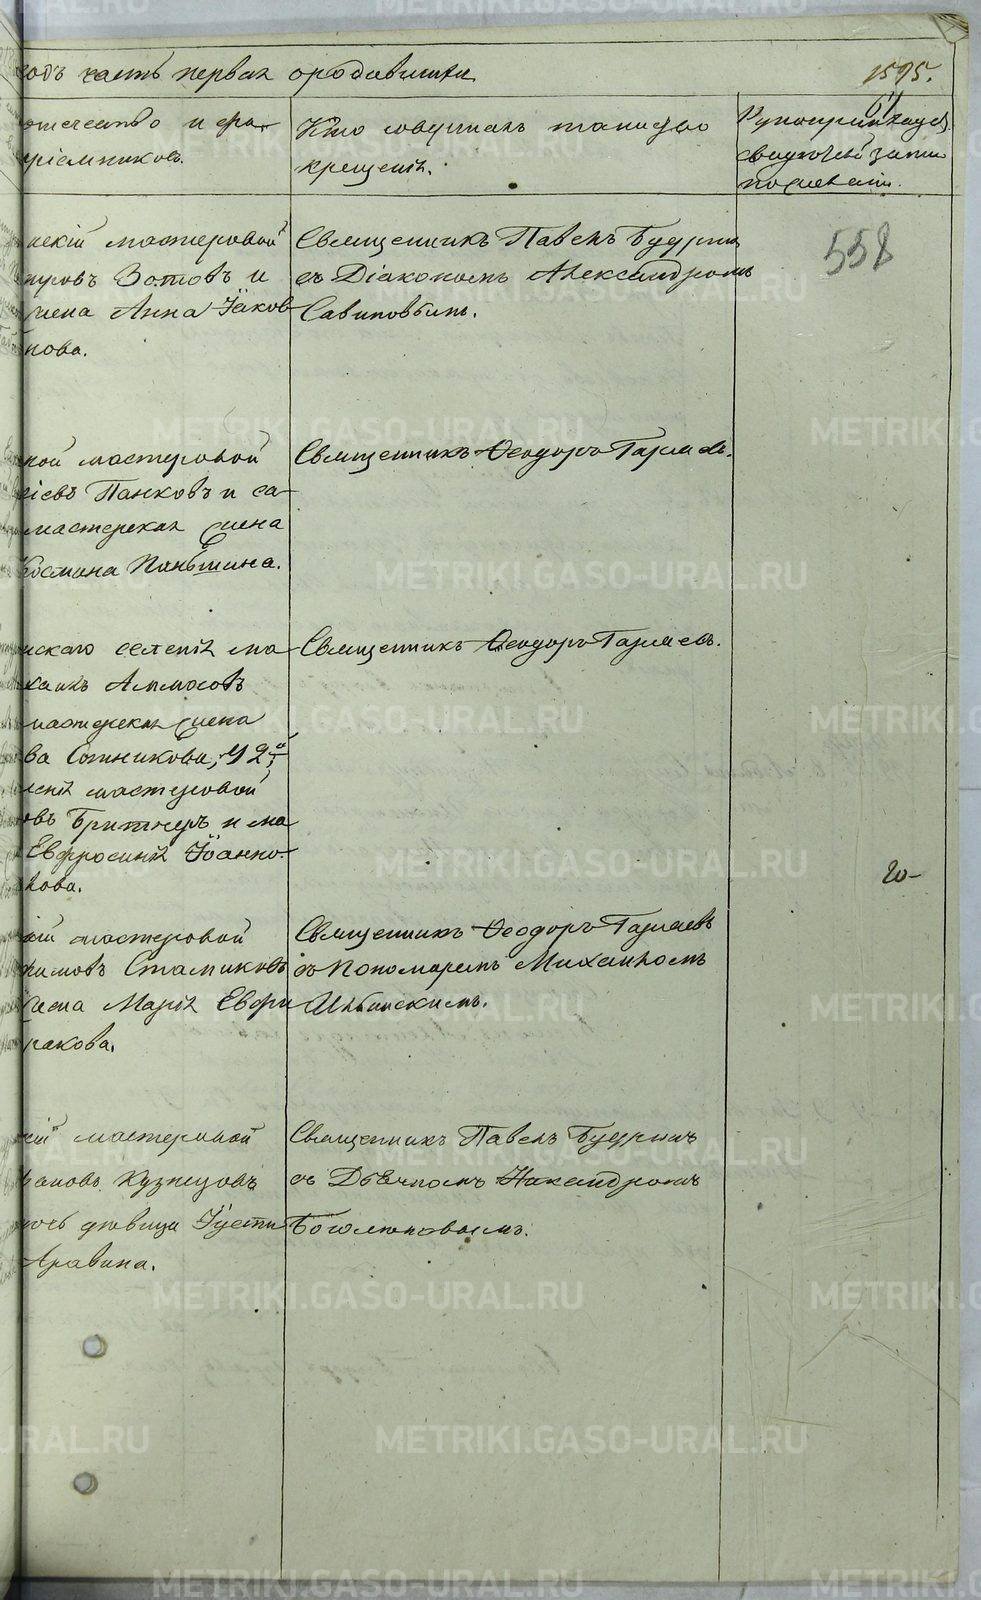 годъ часть первая о родившихся
1595.
отечество и фа-
пріемниковъ.
Кто совершалъ таинство
крещенія.
61
Рукоприкладст.
свидѣтелей запи
по желанію.
скій мастеровой
Зотовъ и
жена Анна Іаков
нова.
Священникъ Павелъ Будринъ
съ Діакономъ Александромъ
Савиновымъ.
558
кой мастеровой
Панковъ и са-
мастерская жена
Паньшина.
Священникъ Ѳеодоръ Гаряевъ.
скаго селенія ма
Аммосовъ
мастерская жена
ва Сотникова; У 2й
ленія мастеровой
овъ и ма
Евфросинія Іоанно-
кова.
Священникъ Ѳеодоръ Гаряевъ.
20-
кій мастеровой
имовъ Стамиковъ
жена Марія Евфи
ракова.
Священникъ Ѳеодоръ Гаряевъ
съ Пономаремъ Михаиломъ
Ильинскимъ.
кій мастеровой
ановъ Кузнецовъ
дочь дѣвица Іусти
Аравина.
Священникъ Павелъ Будринъ
съ Дьячкомъ Никандромъ
Боголюбовымъ.
METRIKI.GASO-URAL.RU